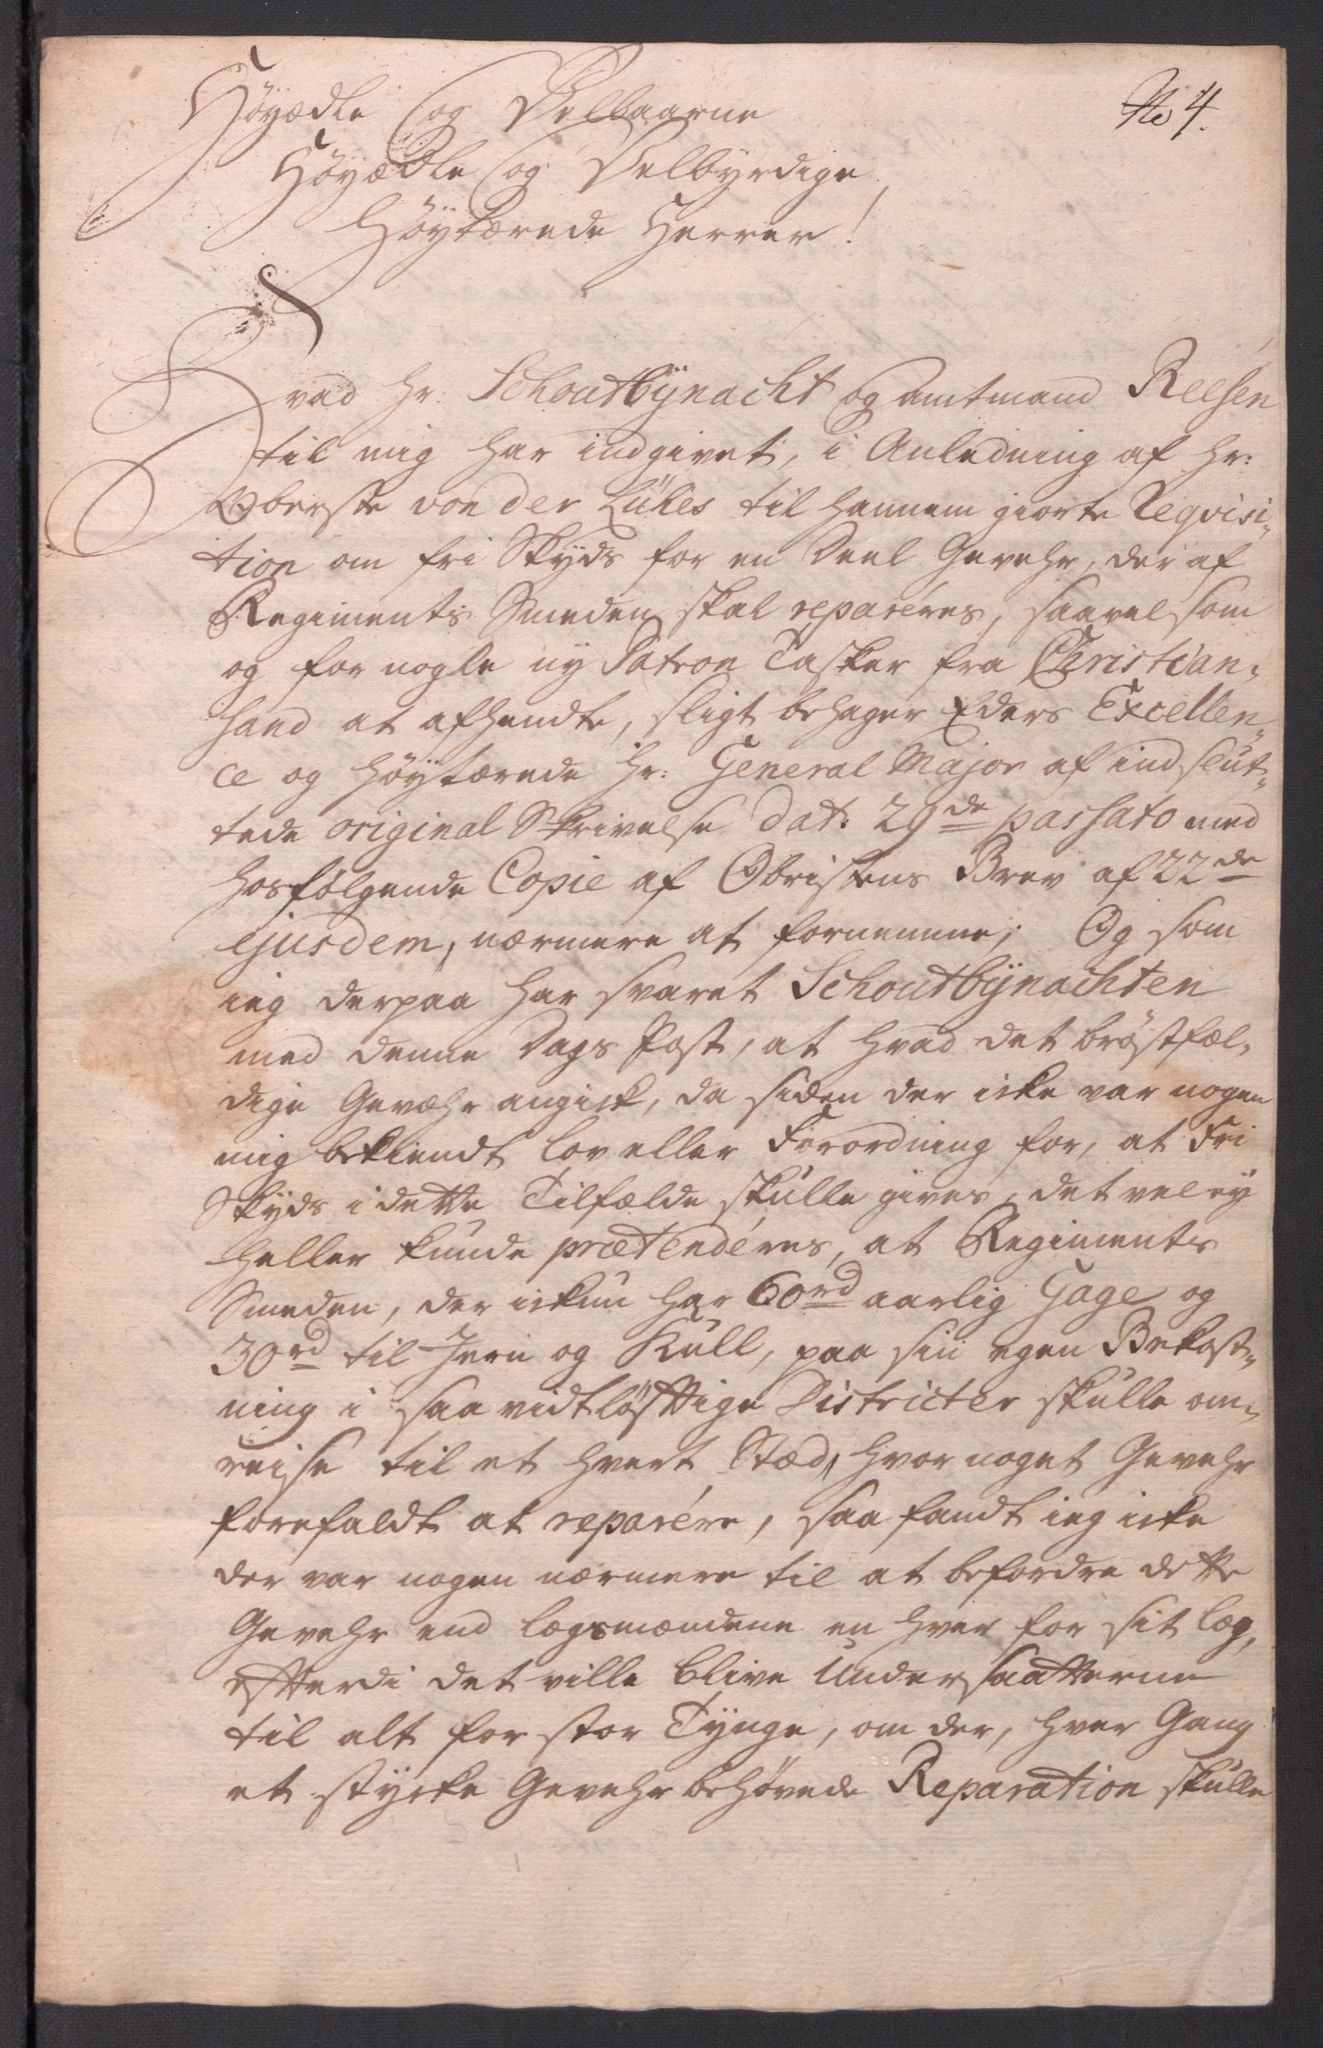 No 4.
Höyædle og Velbaarne
Höyædle og Velbyrdige,
Höytærede Herrer!
Hvad Hr: Schoutbÿnacht og Amtmand Reesen
til mig har indgivet, i Anledning af Hr:
Oberste von der Lühes til hannem giorte Reqvisi„
tion om fri Skyds for en Deel Gevehr, der af
Regiments Smeden skal reparéres, saavelsom
og for nogle ny Patron Tasker fra Christian„
sand at afhendte, sligt behager Eders Excellen„
ce og Höytærede Hr: General Major af indslut„
tede original Skrivelse dat: 29de passato med
hosfølgende Copie af Obristens Brev af 22de
ejusdem, nærmere at fornemme; Og som
ieg derpaa har svaret Schoutbÿnachten
med denne Dags Post, at hvad det bröstfæl„
dige Gevæhr angick, da siden der icke var nogen
mig bekiendt Lov eller Forordning for, at Fri
Skyds i dette Tilfælde skulle gives, det vel ey
heller kunde prætendéres, at Regiments
Smeden, der ickun har 60rd aarlig Gage og
30rd til Jern og Kull, paa sin egen Bekost„
ning i saa vidtløfftige Districter skulle om„
reise til et hvert Stæd, hvor noget Gevehr
forefaldt at reparére, saa fandt ieg icke
der var nogen nærmere til at befordre dette
Gevehr end Lægsmændene en hver for sit Læg,
efterdi det ville blive Undersaatterne
til alt for stor Tynge, om der, hver Gang
et stycke Gevehr behøvede Reparation skulle